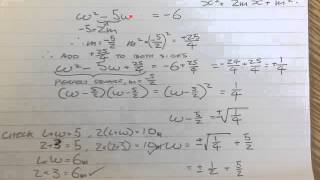 x² + 2mx + m²
ω² - 5ω = -6
-5 = 2m
∴ m = -5/2 ∴ m² = (-5/2)² = +25/4
∴ ADD +25/4 TO BOTH SIDES
ω² - 5ω + 25/4 = -6 + 25/4 = -24/4 + 25/4 = +1/4
PERFECT SQUARE, m = -5/2
(ω - 5/2)(ω - 5/2) = (ω - 5/2)² = 1/4
ω - 5/2 = ±√1/4
CHECK L+W = 5, 2(L+W) = 10m
ω = ±√1/4 + 5/2
2+3 = 5, 2(2+3) = 10m ✓
L×W = 6m
2×3 = 6m ✓
= ±1/2 + 5/2